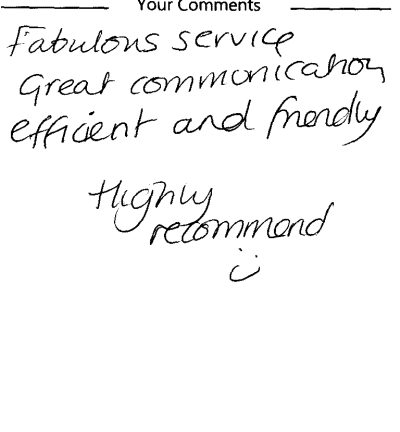 Your Comments
Fabulous service
Great communication
efficient and friendly
Highly
recommend